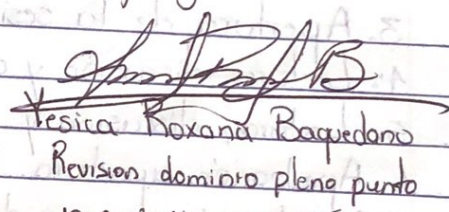 Yesica Roxana Baquedano
Revision dominio pleno punto